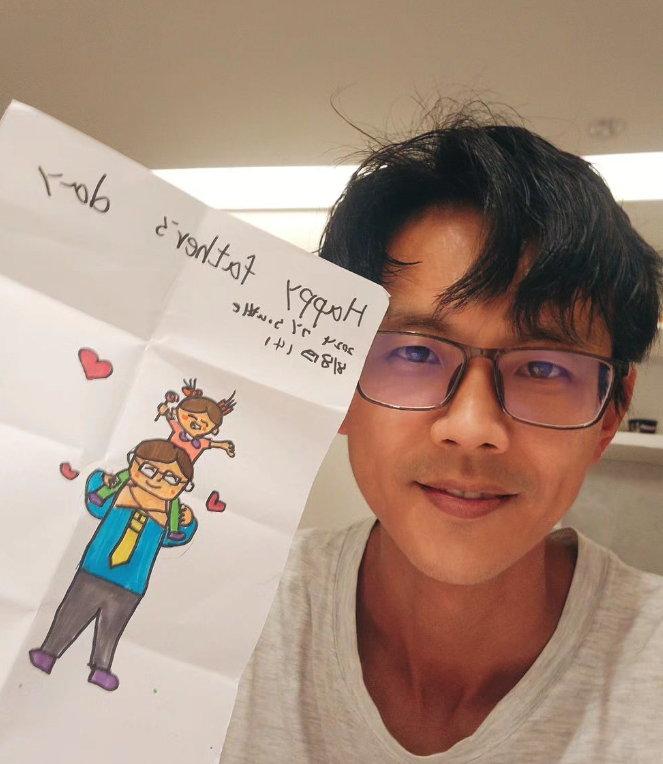 Happy father's day
2024
8/8日 (4)